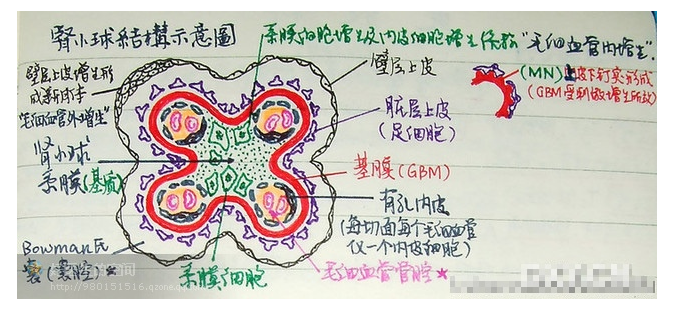 肾小球结構示意圖
系膜细胞增生及内皮细胞增生俗称"毛细血管内增生".
壁层上皮增生形
成新月体
"毛细血管外增生"
肾小球
系膜(基质)
Bowman氏
囊(囊腔)★
壁层上皮
脏层上皮
(足细胞)
基膜(GBM)
有孔内皮
(每切面每个毛细血管
仅一个内皮细胞)
系膜细胞
毛细血管管腔★
(MN)上皮下钉突形成
(GBM受刺激增生所致)
http://980151516.qzone.q